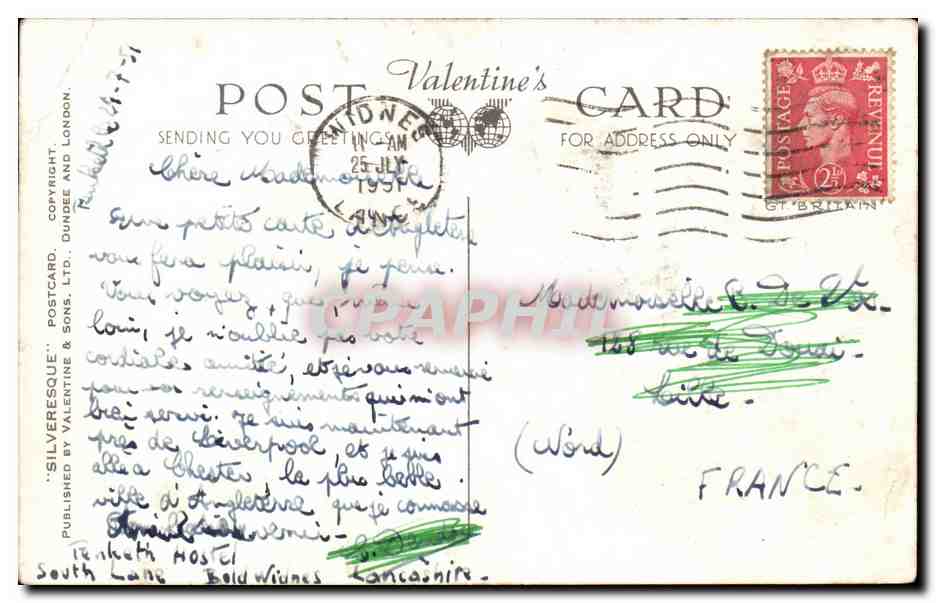 POST Valentine's CARD
SENDING YOU GREETINGS FOR ADDRESS ONLY
"SILVERESQUE" POSTCARD. COPYRIGHT.
PUBLISHED BY VALENTINE & SONS, LTD., DUNDEE AND LONDON.
WIDNES
11 - AM
25 JLY
1951
LANCS
POSTAGE
REVENUE
2½D
GT. BRITAIN
Chère Mademoiselle
petite carte d'Angleterre
vous fera plaisir, je pense.
Vous voyez, que même
loin, je n'oublie pas votre
cordiale amitié, et je vous remercie
pour vos renseignements qui m'ont
bien servi. Je suis maintenant
près de Liverpool, et je suis
allé à Chester, la plus belle
ville d'Angleterre que je connaisse
Penketh HOSTEL
South Lane Bold Widnes Lancashire -
Mademoiselle
148 rue de Douai -
Lille -
(Nord)
FRANCE.
CPAPHIL